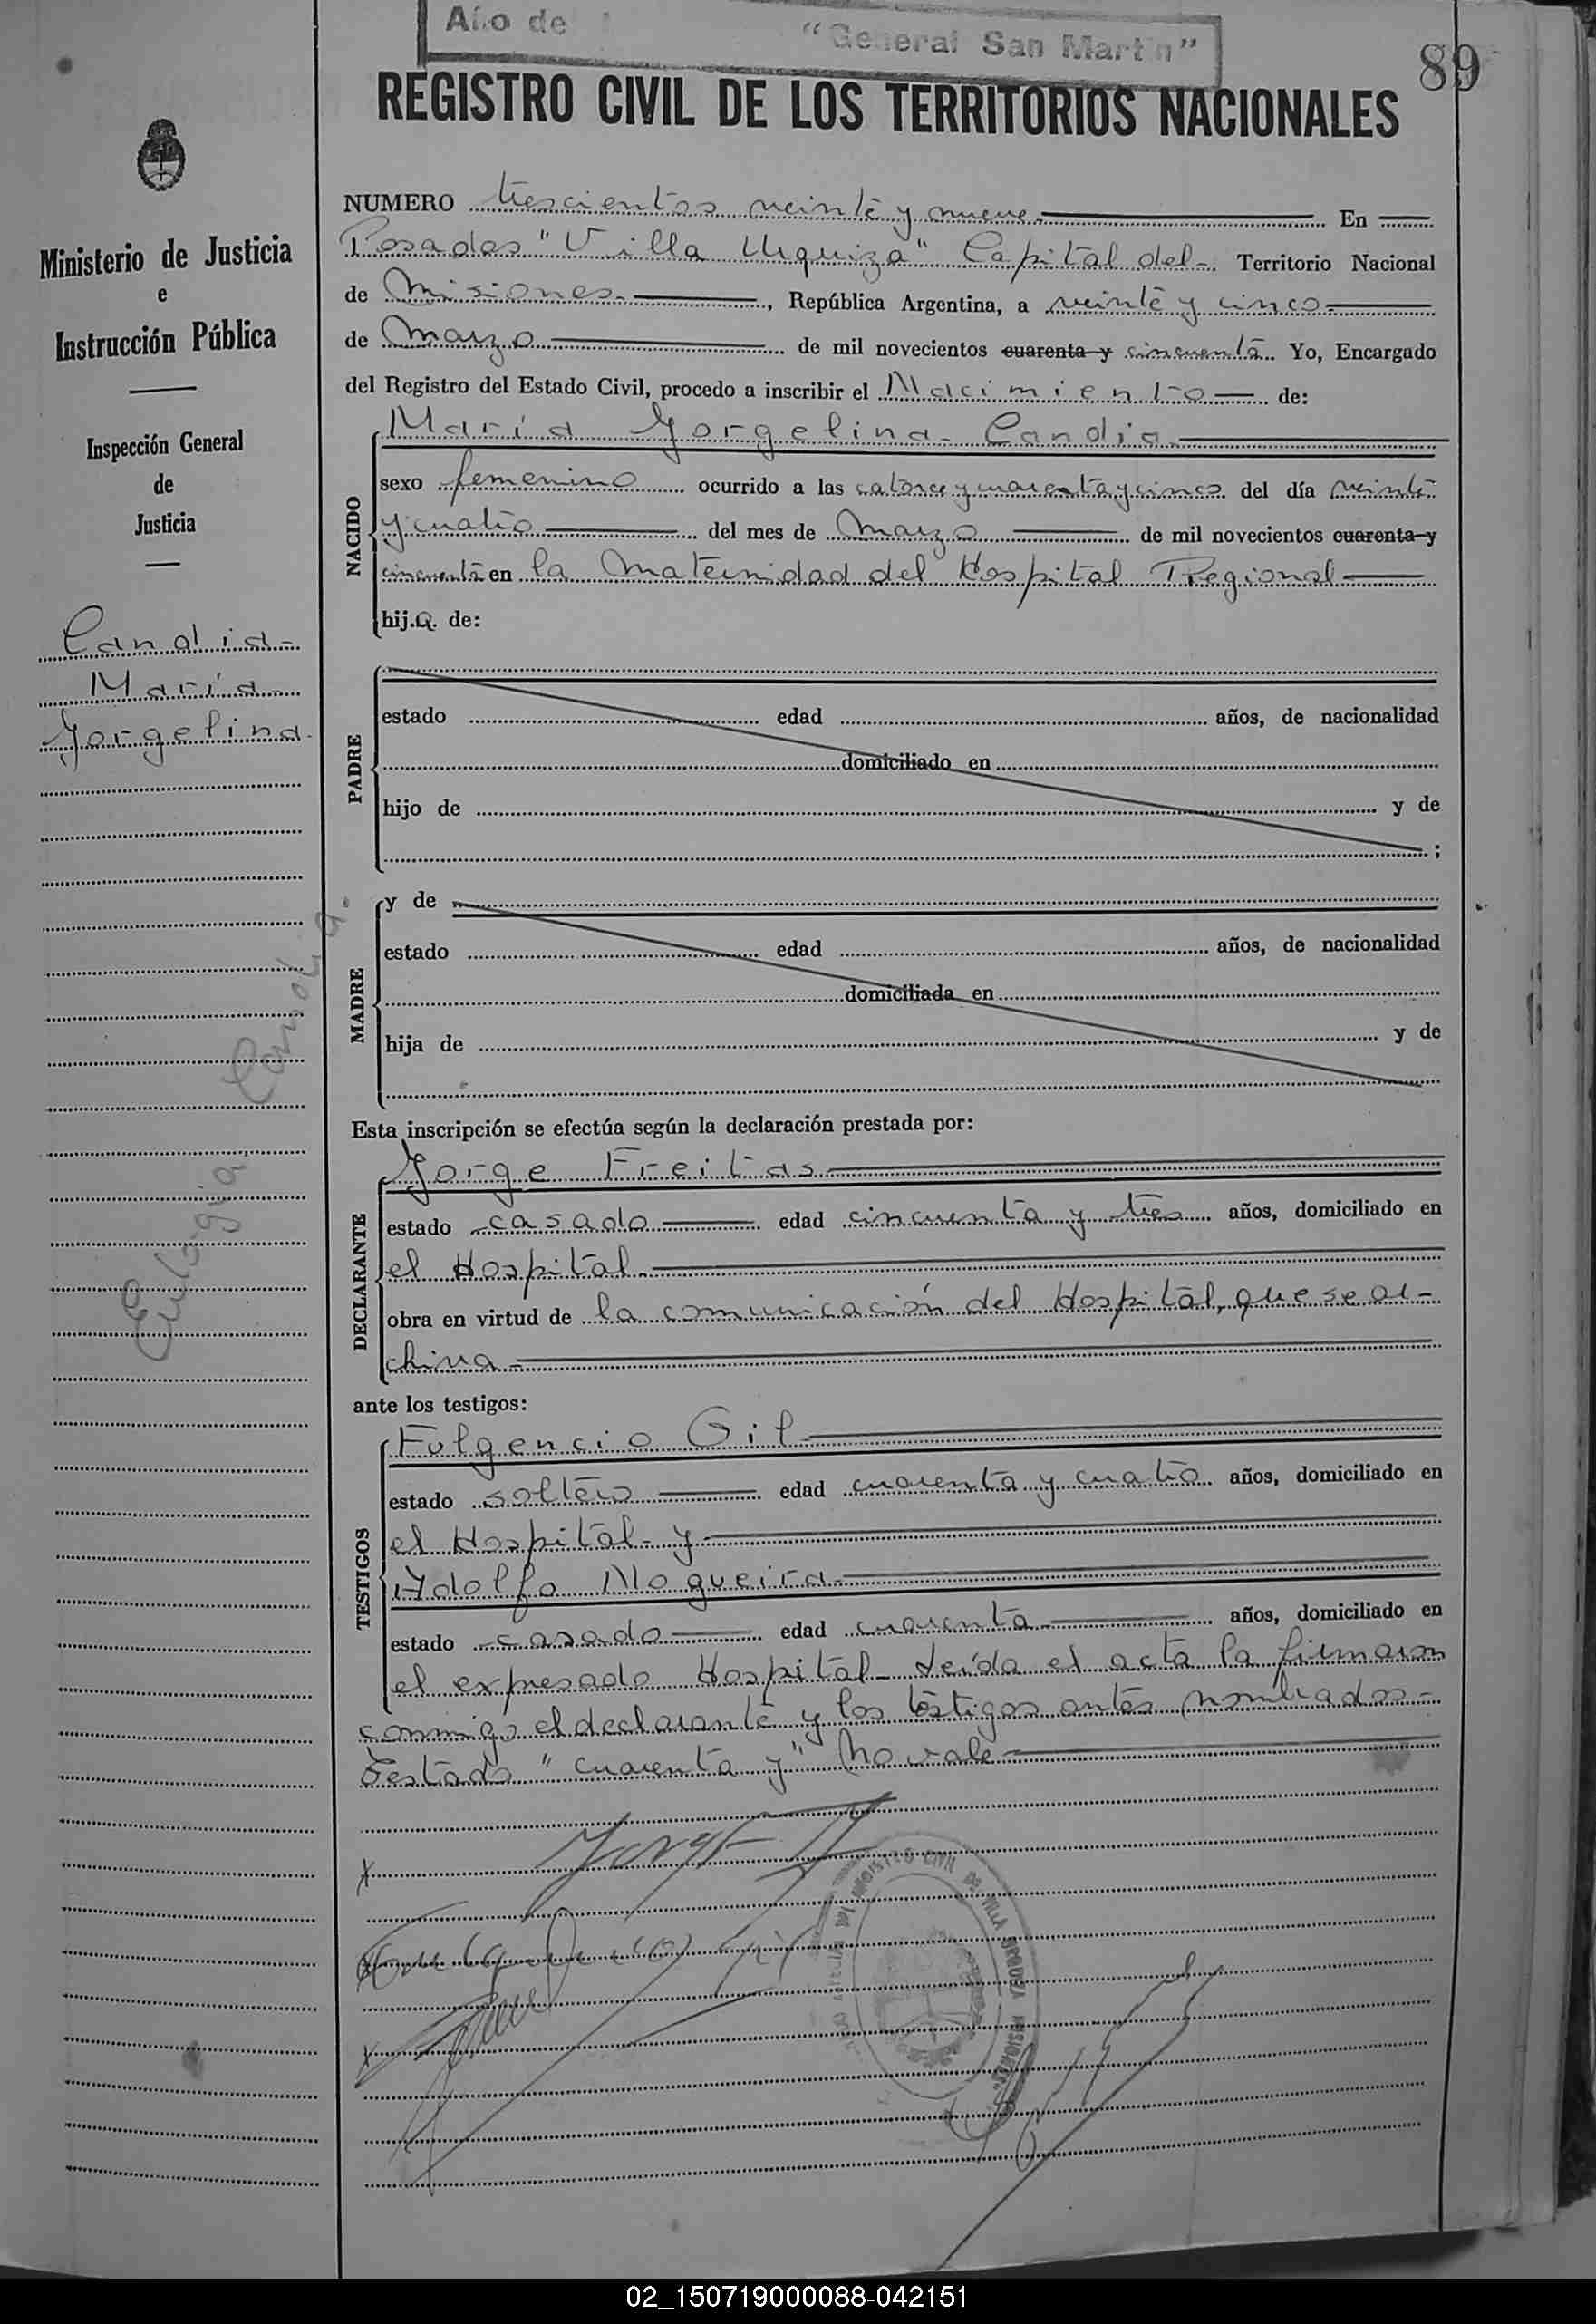 Año de "General San Martín"
89
REGISTRO CIVIL DE LOS TERRITORIOS NACIONALES
Ministerio de Justicia
e
Instrucción Pública
Inspección General
de
Justicia
Candia-
María
Jorgelina.
Eulogia Candia.
NUMERO trescientos veinte y nueve En
Posadas "Villa Urquiza" Capital del- Territorio Nacional
de Misiones- , República Argentina, a veinte y cinco
de Marzo de mil novecientos cuarenta y cincuenta Yo, Encargado
del Registro del Estado Civil, procedo a inscribir el Nacimiento de:
NACIDO
María Jorgelina- Candia
sexo femenino ocurrido a las catorce y cuarenta y cinco del día veinte
y cuatro del mes de Marzo de mil novecientos cuarenta y
cincuenta en la Maternidad del Hospital Regional
hij.a. de:
PADRE
estado edad años, de nacionalidad
domiciliado en
hijo de y de
;
MADRE
y de
estado edad años, de nacionalidad
domiciliada en
hija de y de
Esta inscripción se efectúa según la declaración prestada por:
DECLARANTE
Jorge Freitas
estado casado edad cincuenta y tres años, domiciliado en
el Hospital
obra en virtud de la comunicación del Hospital, que se ar-
chiva
ante los testigos:
TESTIGOS
Fulgencio Gil
estado soltero edad cuarenta y cuatro años, domiciliado en
el Hospital- y
Adolfo Nogueira
estado casado edad cuarenta años, domiciliado en
el expresado Hospital- Leída el acta la firmaron
conmigo el declarante y los testigos antes nombrados-
Testado "cuarenta y" No vale
REGISTRO CIVIL DE VILLA URQUIZA MISIONES
02_150719000088-042151